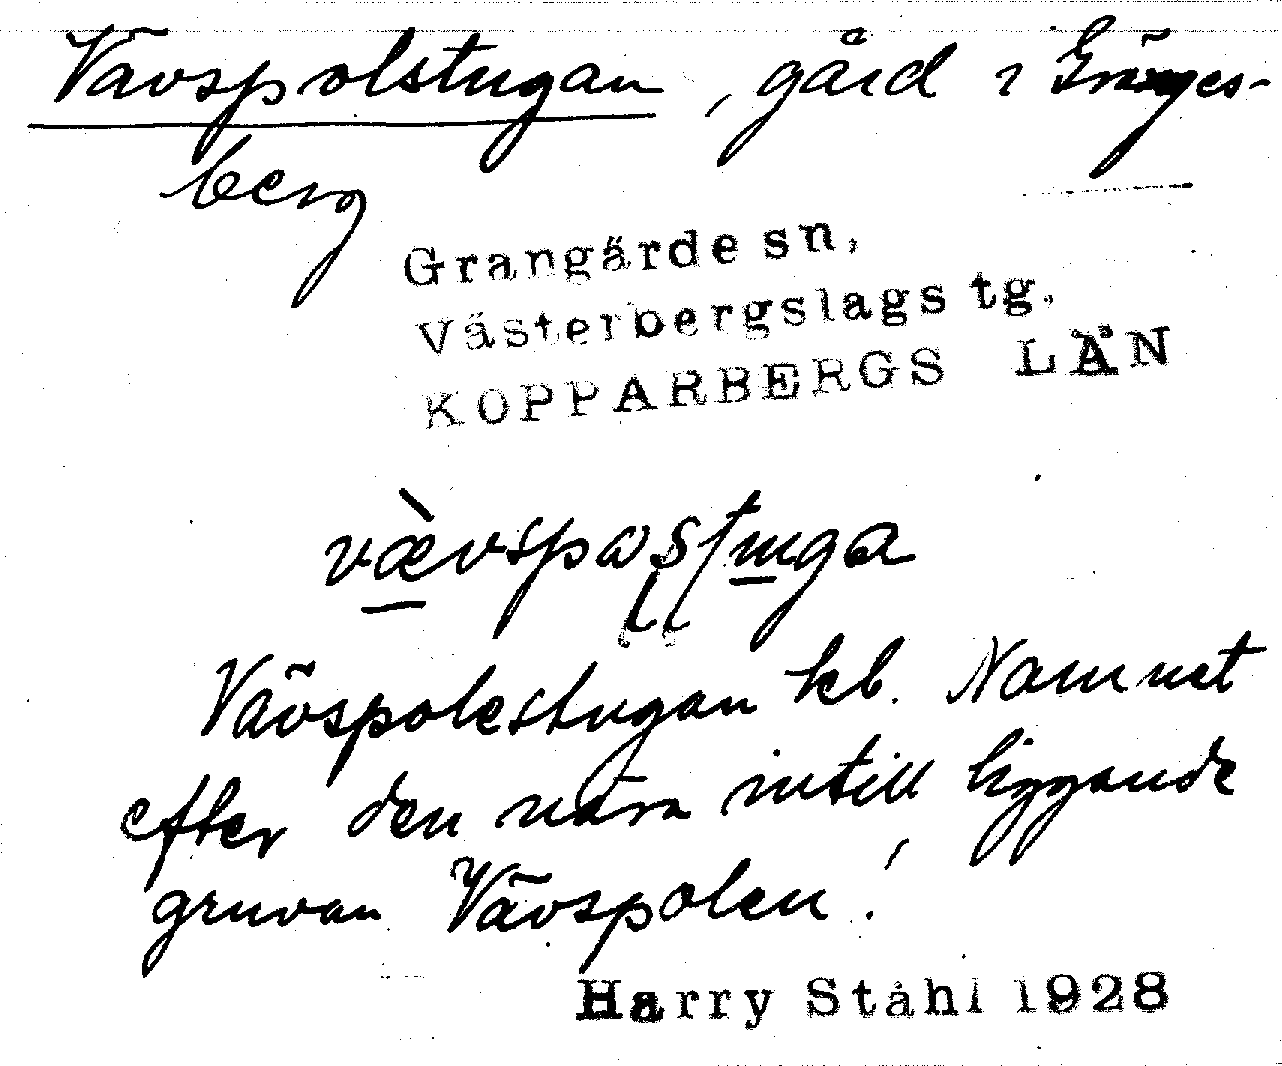 Vävspolstugan, gård i Gränges-
berg
Grangärde sn,
Västerbergslags tg.
KOPPARBERGS LÄN
Vävspolestugan kb. Namnet
efter den nära intill liggande
gruvan Vävspolen.
Harry Ståhl 1928